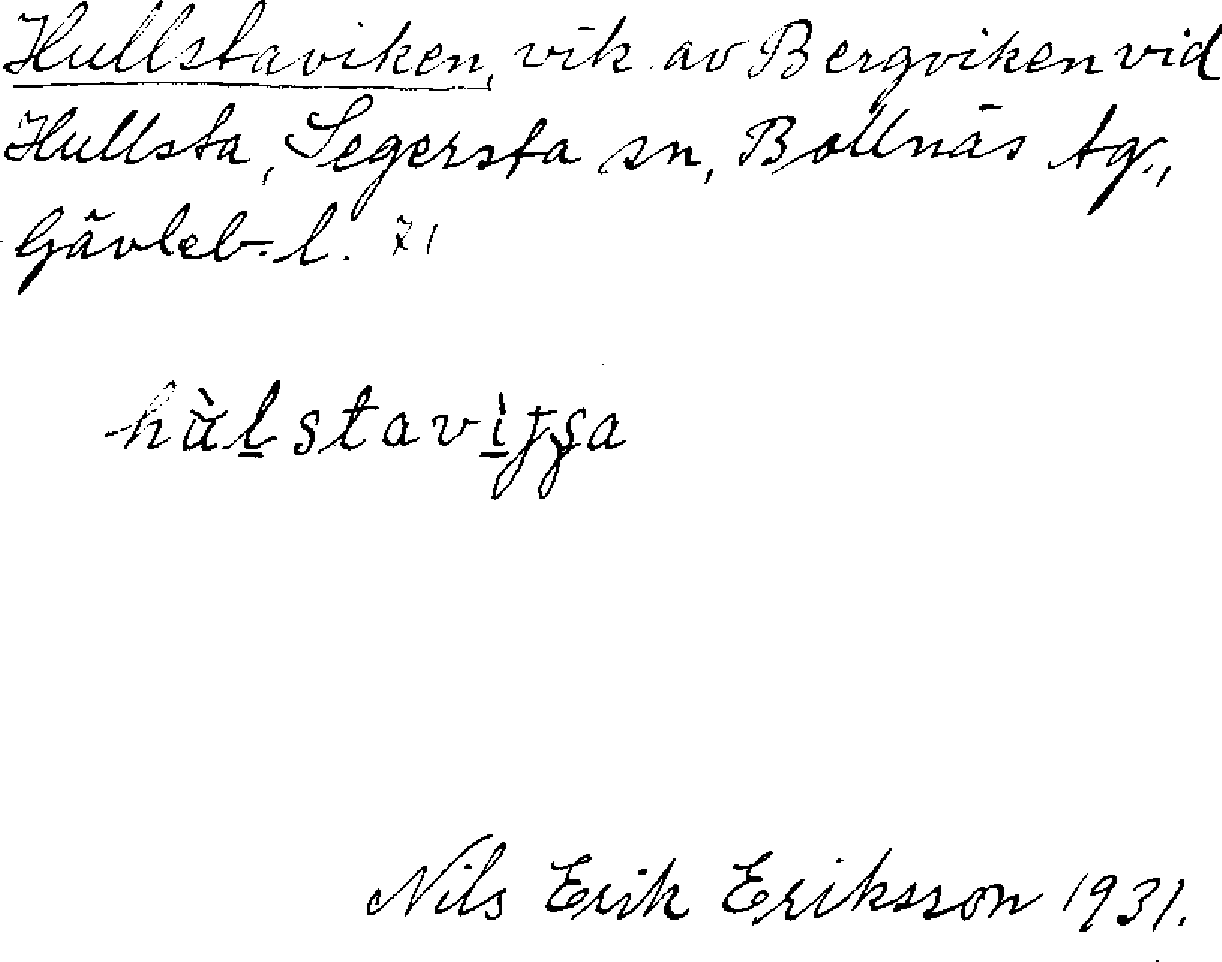 Hullstaviken, vik av Bergviken vid
Hullsta, Segersta sn, Bollnäs tg.,
Gävleb. l. 71
Nils Erik Eriksson 1931.